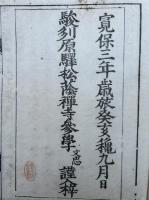 寛保三年歳旅癸亥穐九月日
駿州原驛松蔭禪寺參學文忠謹梓